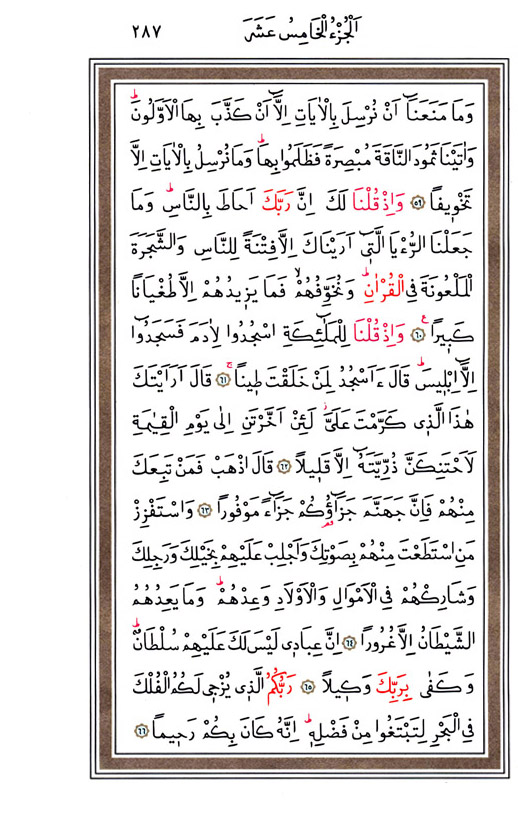 اَلْجُزْءُ الْخَامِسُ عَشَرَ ٢٨٧
وَمَا مَنَعَنَٓا اَنْ نُرْسِلَ بِالْاٰيَاتِ اِلَّٓا اَنْ كَذَّبَ بِهَا الْاَوَّلُونَۜ
وَاٰتَيْنَا ثَمُودَ النَّاقَةَ مُبْصِرَةً فَظَلَمُوا بِهَاۜ وَمَا نُرْسِلُ بِالْاٰيَاتِ اِلَّا
تَخْوٖيفًا ﴿٥٩﴾ وَاِذْ قُلْنَا لَكَ اِنَّ رَبَّكَ اَحَاطَ بِالنَّاسِۜ وَمَا
جَعَلْنَا الرُّءْيَا الَّتٖٓى اَرَيْنَاكَ اِلَّا فِتْنَةً لِلنَّاسِ وَالشَّجَرَةَ
الْمَلْعُونَةَ فِى الْقُرْاٰنِۜ وَنُخَوِّفُهُمْۙ فَمَا يَزٖيدُهُمْ اِلَّا طُغْيَانًا
كَبٖيرًا ﴿٦٠﴾ وَاِذْ قُلْنَا لِلْمَلٰٓئِكَةِ اسْجُدُوا لِاٰدَمَ فَسَجَدُٓوا
اِلَّٓا اِبْلٖيسَۜ قَالَ ءَاَسْجُدُ لِمَنْ خَلَقْتَ طٖينًاۚ ﴿٦١﴾ قَالَ اَرَاَيْتَكَ
هٰذَا الَّذٖى كَرَّمْتَ عَلَىَّۘ لَئِنْ اَخَّرْتَنِ اِلٰى يَوْمِ الْقِيٰمَةِ
لَاَحْتَنِكَنَّ ذُرِّيَّتَهُٓ اِلَّا قَلٖيلًا ﴿٦٢﴾ قَالَ اذْهَبْ فَمَنْ تَبِعَكَ
مِنْهُمْ فَاِنَّ جَهَنَّمَ جَزَٓاؤُ۬كُمْ جَزَٓاءً مَوْفُورًا ﴿٦٣﴾ وَاسْتَفْزِزْ
مَنِ اسْتَطَعْتَ مِنْهُمْ بِصَوْتِكَ وَاَجْلِبْ عَلَيْهِمْ بِخَيْلِكَ وَرَجِلِكَ
وَشَارِكْهُمْ فِى الْاَمْوَالِ وَالْاَوْلَادِ وَعِدْهُمْۜ وَمَا يَعِدُهُمُ
الشَّيْطَانُ اِلَّا غُرُورًا ﴿٦٤﴾ اِنَّ عِبَادٖى لَيْسَ لَكَ عَلَيْهِمْ سُلْطَانٌۜ
وَكَفٰى بِرَبِّكَ وَكٖيلًا ﴿٦٥﴾ رَبُّكُمُ الَّذٖى يُزْجٖى لَكُمُ الْفُلْكَ
فِى الْبَحْرِ لِتَبْتَغُوا مِنْ فَضْلِهٖۜ اِنَّهُ كَانَ بِكُمْ رَحٖيمًا ﴿٦٦﴾